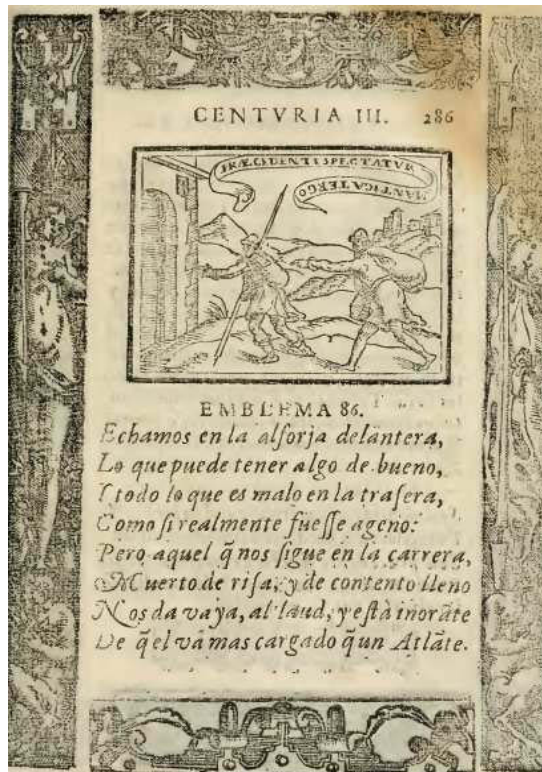 CENTVRIA III. 286
PRÆCEDENTI SPECTATVR
MANTICA TERGO
EMBLEMA 86.
Echamos en la alforja delãntera,
Lo que puede tener algo de bueno,
Y todo lo que es malo en la trasera,
Como si realmente fuesse ageno:
Pero aquel q̃ nos sigue en la carrera,
Muerto de risa, y de contento lleno
Nos da vaya, al laud, y està inorãte
De q̃ el và mas cargado q̃ un Atlãte.